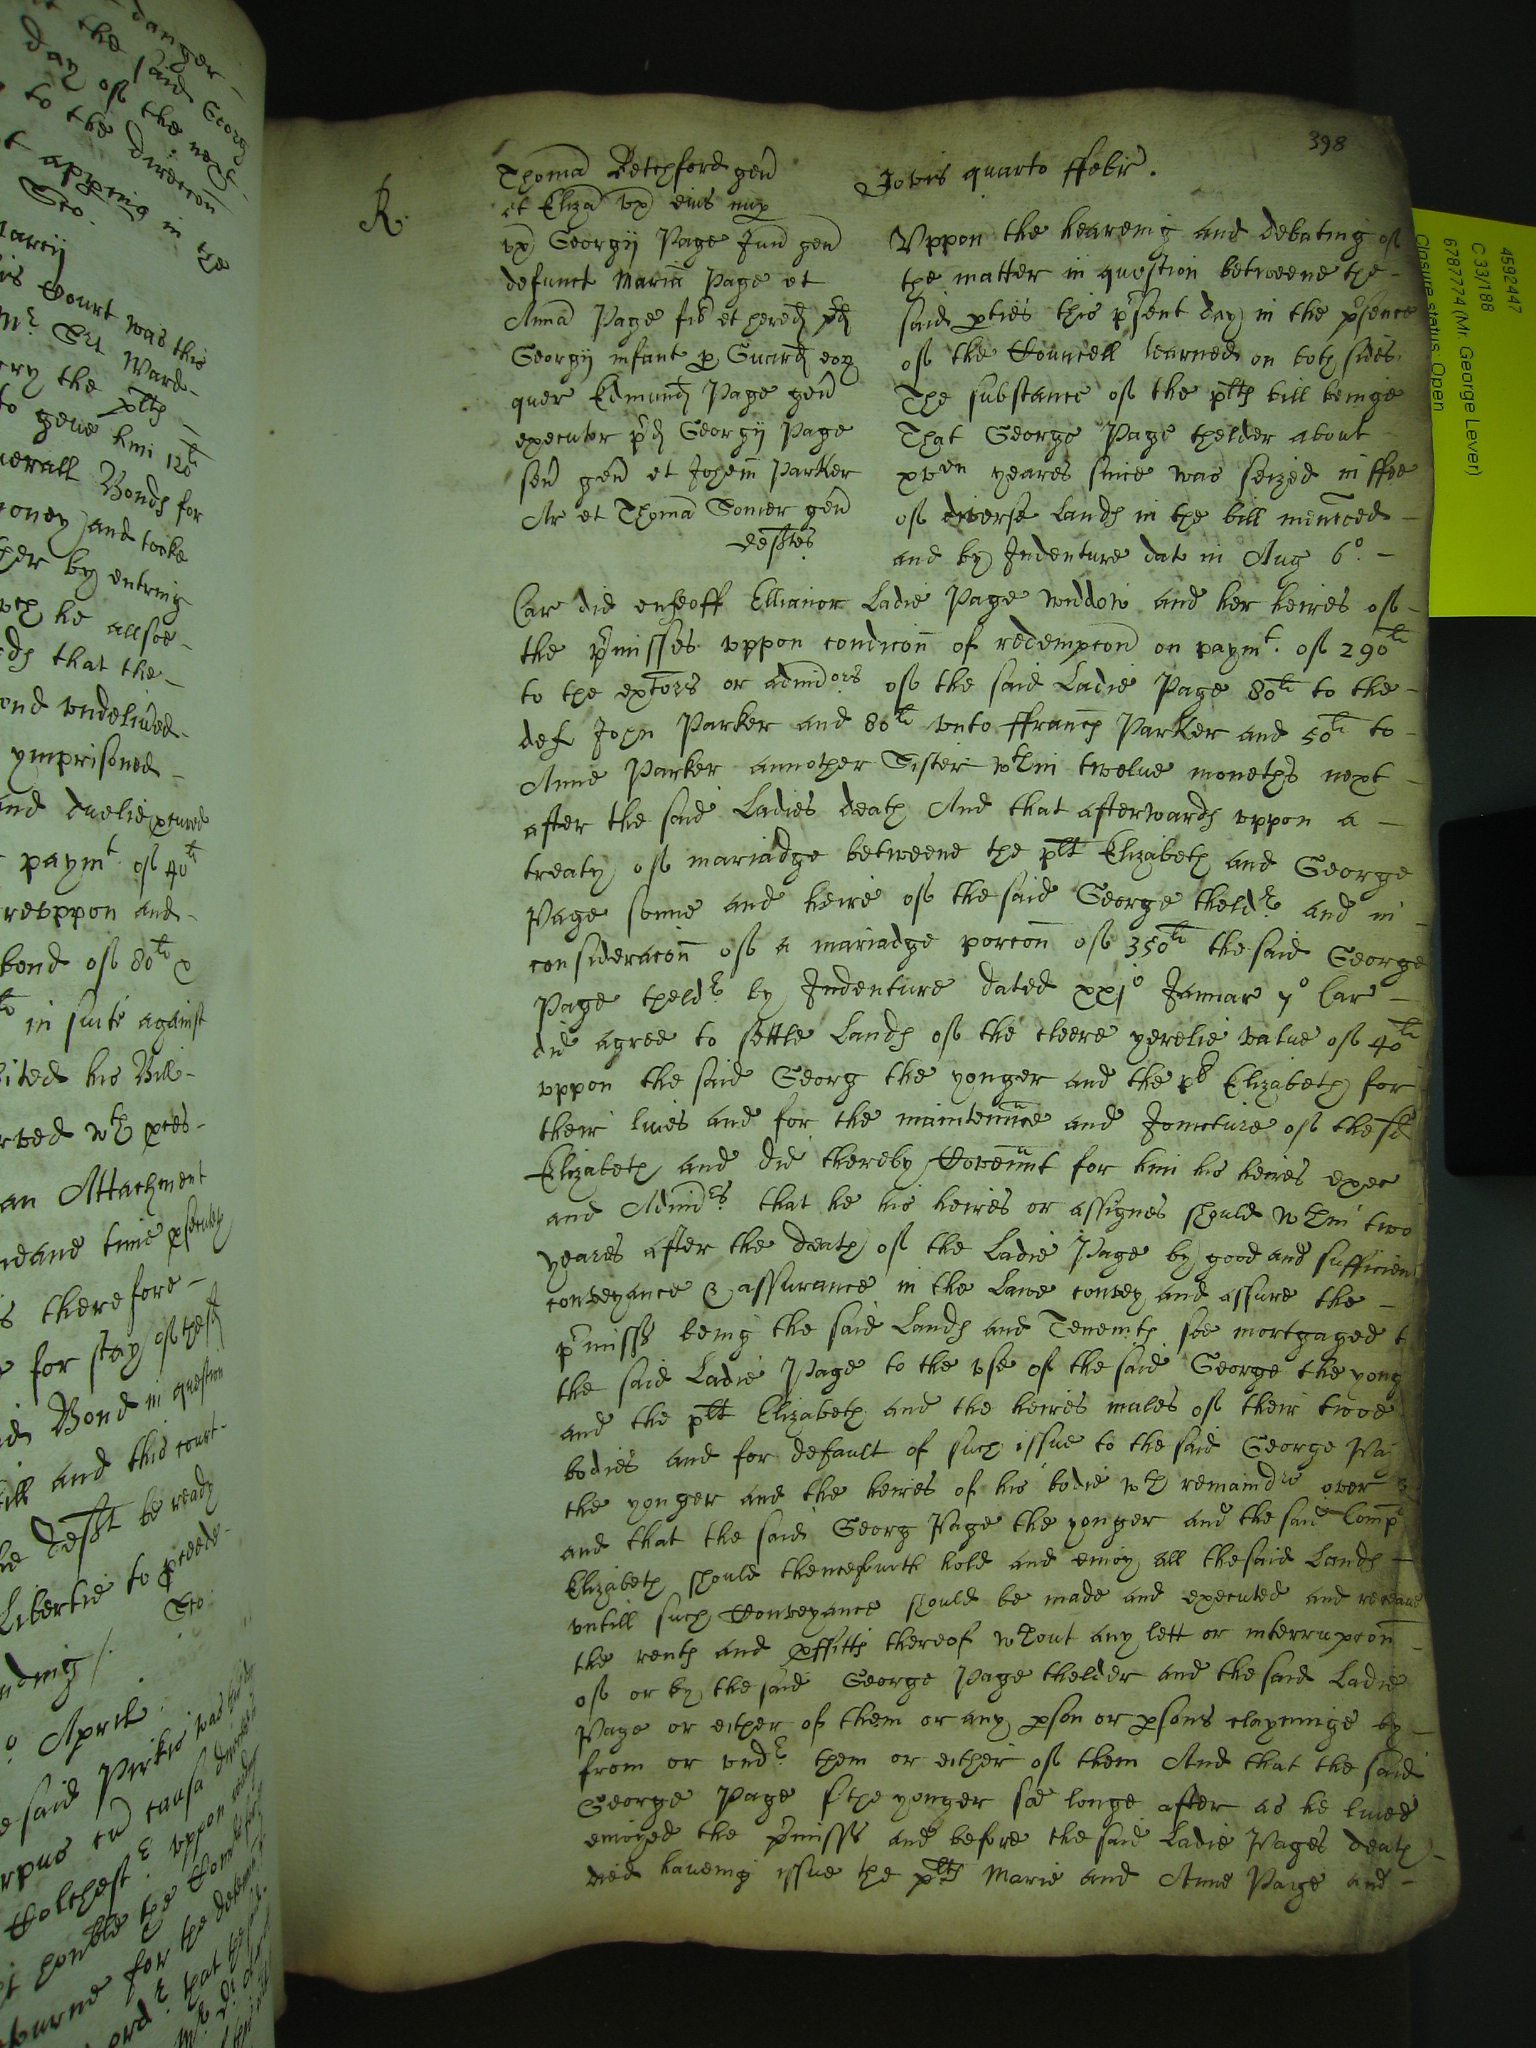 398
R.
Thoma Betchford gen
et Eliza vx eius nup
vx Georgij Page Jun gen
defunct Maria Page et
Anna Page fil et hered pd
Georgij infant p Guard eoz
quer Edmund Page gen
executor pd Georgij Page
sen gen et Johem Parker
Ar et Thoma Somer gen
defftes
Jovis quarto ffebr.
Vppon the heareing and debating of
the matter in question betweene the
said pties this psent day in the psence
of the Councell learned on both sides
The substance of the plts bill beinge
That George Page thelder about
xven yeares since was seized in ffee
of diverse Lands in the bill menconed
and by Indenture dat in Aug 6o
Car did enfeoff Ellianor Ladie Page widdow and her heires of
the pmisses vppon condicon of redempcon on paymt. of 290li
to the extors or admidors of the said Ladie Page 80li to the
def John Parker and 80li vnto ffrancs Parker and 50li to
Anne Parker annother Sister wthin twelve moneths next
after the said Ladies death And that afterwards vppon a
treaty of mariadge betweene the plt Elizabeth and George
Page sonne and heire of the said George theldr and in
consideracon of a mariadge porcon of 350li the said George
Page theldr by Indenture dated xxjo Januar 7o Car
did agree to settle Lands of the cleere yerelie value of 40li
vppon the said Georg the yonger and the pl Elizabeth for
their lives and for the maintennce and Joincture of the sd
Elizabeth and did thereby Covennt for him his heires exec
and Admidrs that he his heires or assignes should wthin two
yeares after the death of the Ladie Page by good and sufficien
conveyance & assurance in the Lawe convey and assure the
pmisss being the said Lands and Tenemts soe mortgaged t
the said Ladie Page to the vse of the said George the yong
and the plt Elizabeth and the heires males of their twoe
bodies and for default of such issue to the said George Pa
the yonger and the heires of his bodie wth remaindrs over
and that the said Georg Page the yonger and the said Compl
Elizabeth should thencefourth hold and enioy all the said Lands
vntill such Conveyance should be made and executed and receave
the rents and pffitts thereof wthout any lett or interrupcon
of or by the said George Page thelder and the said Ladie
Page or either of them or any pson or psons clayminge by
from or vndr them or either of them And that the said
George Page the yonger soe longe after as he lived
enioyed the pmisss and before the said Ladie Pages death
died haveing issue the plts Marie and Anne Page and
danger
the said George
day of the next
to the direccon
appeing in the
Martij
his Court was this
Mr Srt Ward
the plts
to geve him 120li
severall Bonds for
money and tooke
her by entring
wch he allsoe
that the
bond vndelived
ymprisoned
and
paymt of 40li
thereuppon and
bond of 80li
in suite against
exhibited his Bill
served wth pces
an Attachment
meane time
is therefore
for stay of the sd
said Bond in question
bill and this court
the defft be ready
Libertie to pceede
April
the said Perkis was
corpus cu causa
vppon
4592447
C 33/188
6787774 (Mr. George Lever)
Closure status: Open